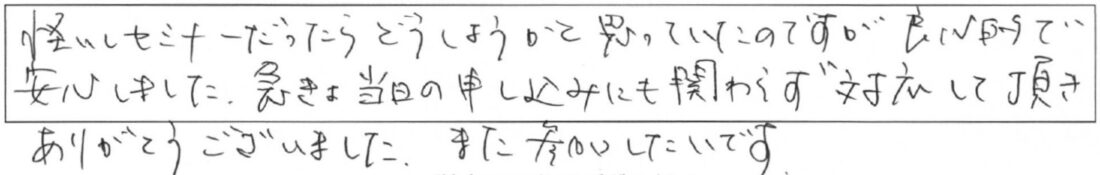 怪しいセミナーだったらどうしようかと思っていたのですが良心的で
安心しました。急きょ当日の申し込みにも関わらず対応して頂き
ありがとうございました。また参加したいです